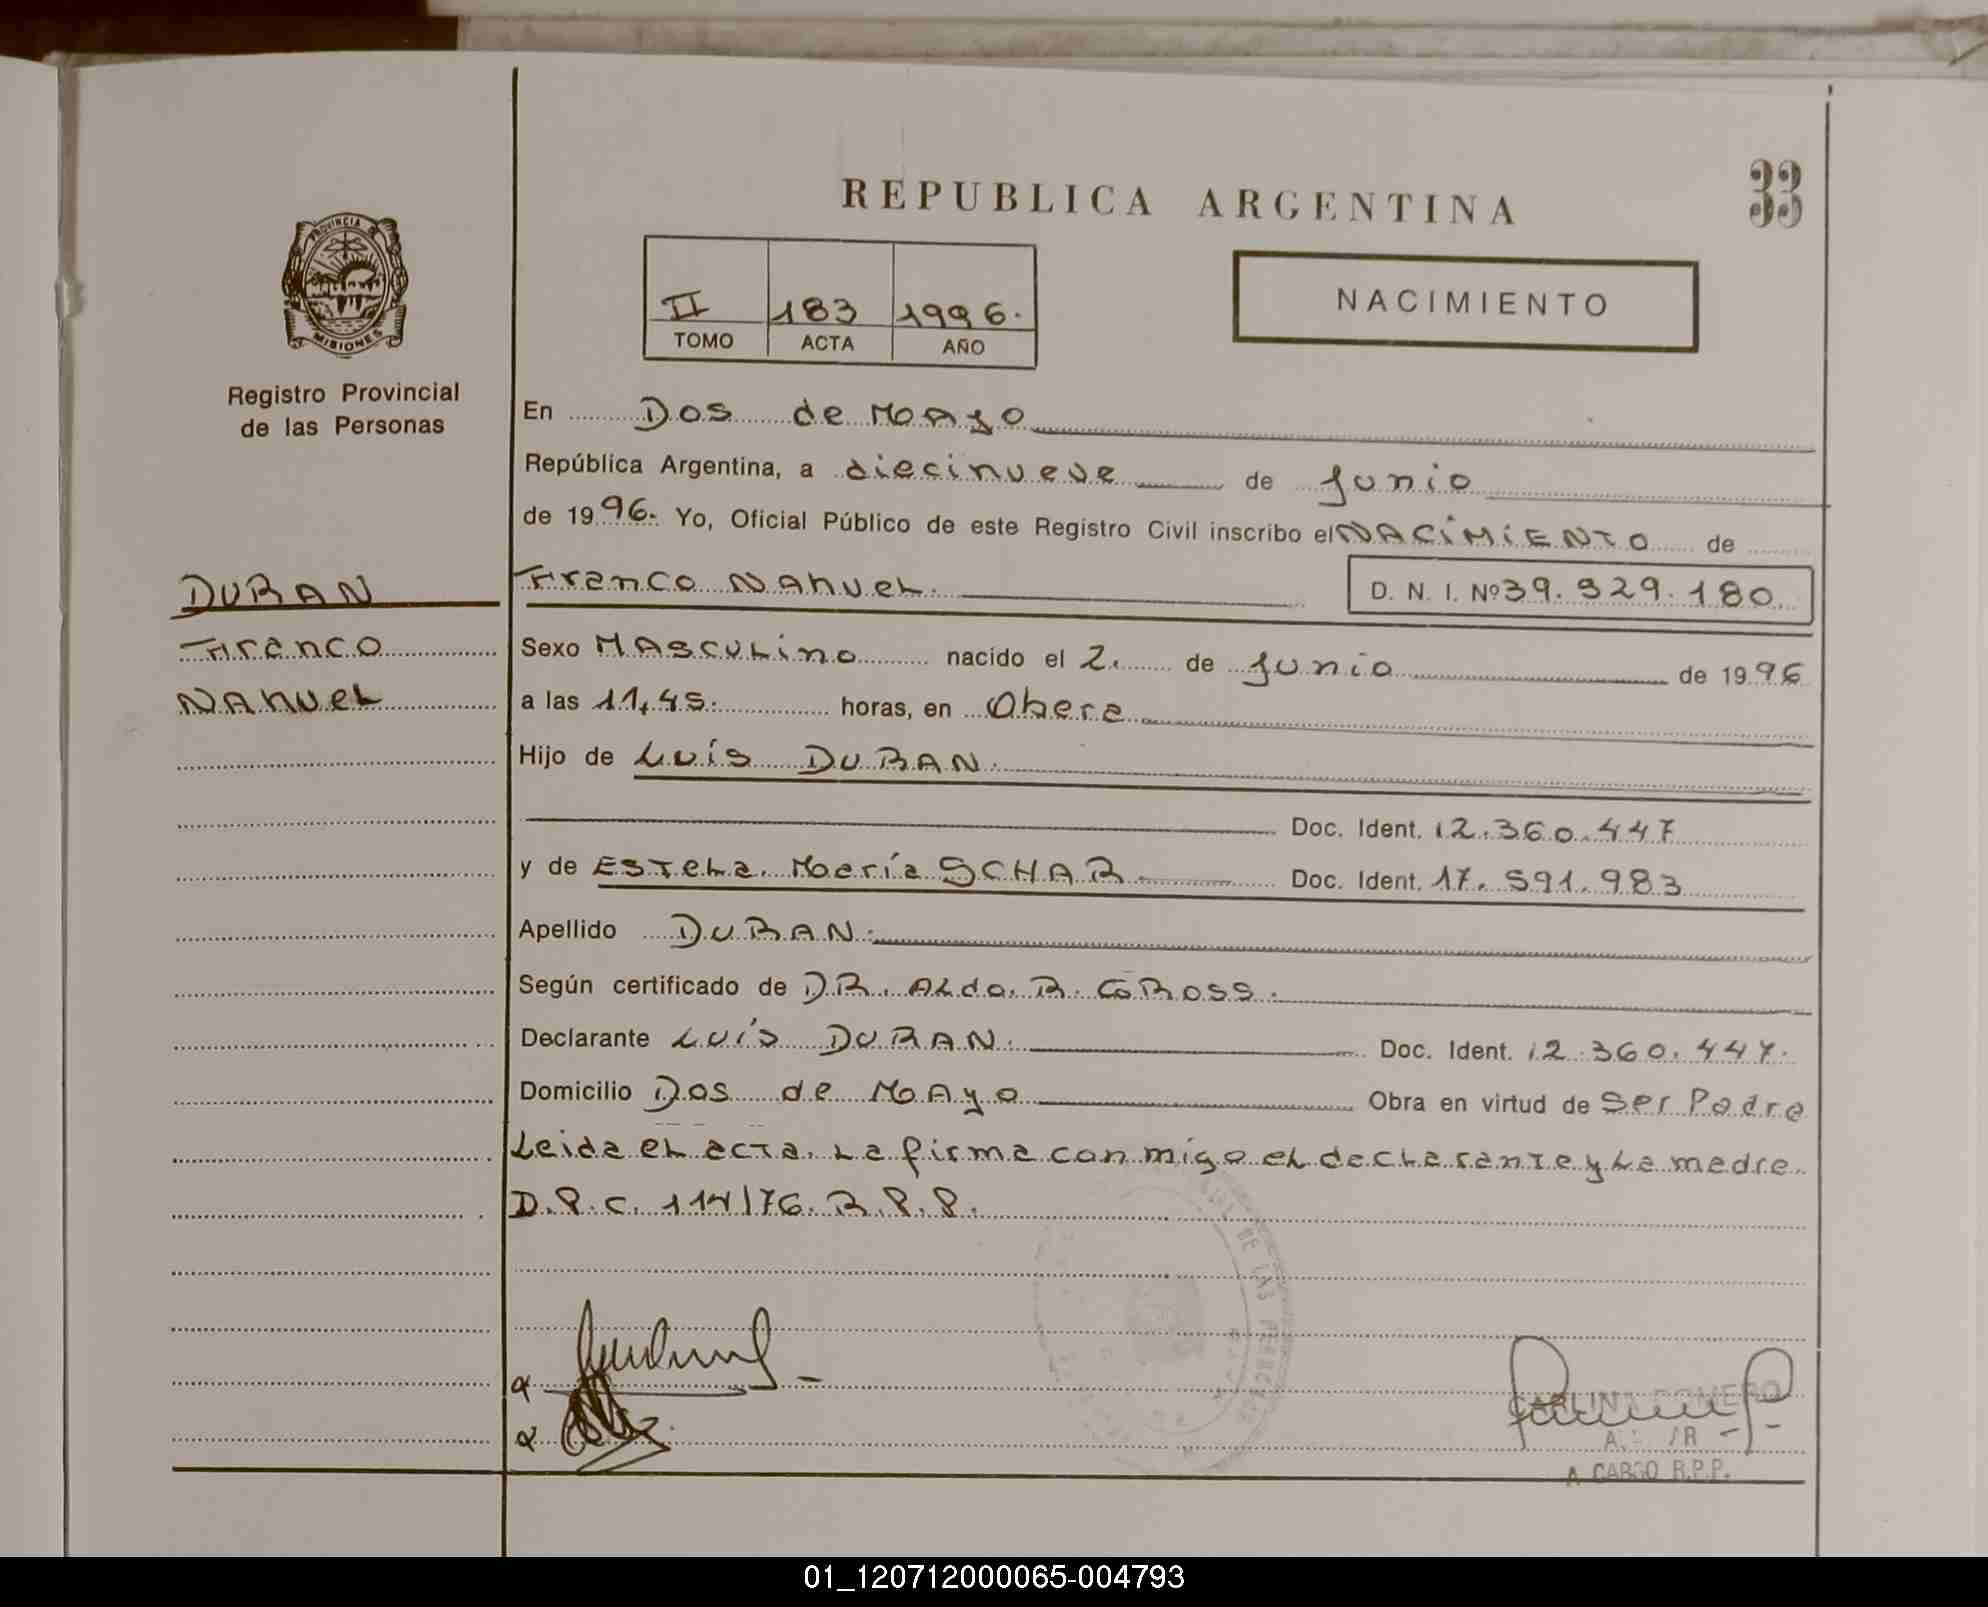 REPUBLICA ARGENTINA
33
PROVINCIA D
MISIONES
Registro Provincial
de las Personas
II 183 1996.
TOMO ACTA AÑO
NACIMIENTO
En Dos de Mayo
República Argentina, a diecinueve de Junio
de 1996. Yo, Oficial Público de este Registro Civil inscribo el NACIMIENTO de
Franco Nahuel. D. N. I. Nº 39.529.180.
DURAN
Franco
Nahuel
Sexo Masculino nacido el 2. de Junio de 1996
a las 11,45. horas, en Obera
Hijo de Luís DURAN.
Doc. Ident. 12.360.447
y de Estela María SCHAR Doc. Ident. 17.591.983
Apellido DURAN.
Según certificado de DR. Aldo R.
Declarante Luís DURAN. Doc. Ident. 12.360.447.
Domicilio Dos de Mayo Obra en virtud de Ser Padre
Leida el acta, la firma conmigo el declarante y la madre.
D.P.C. 114/76. R.P.P.
DE LAS PERSONAS
CARLINA ROMERO
A CARGO R.P.P.
01_120712000065-004793